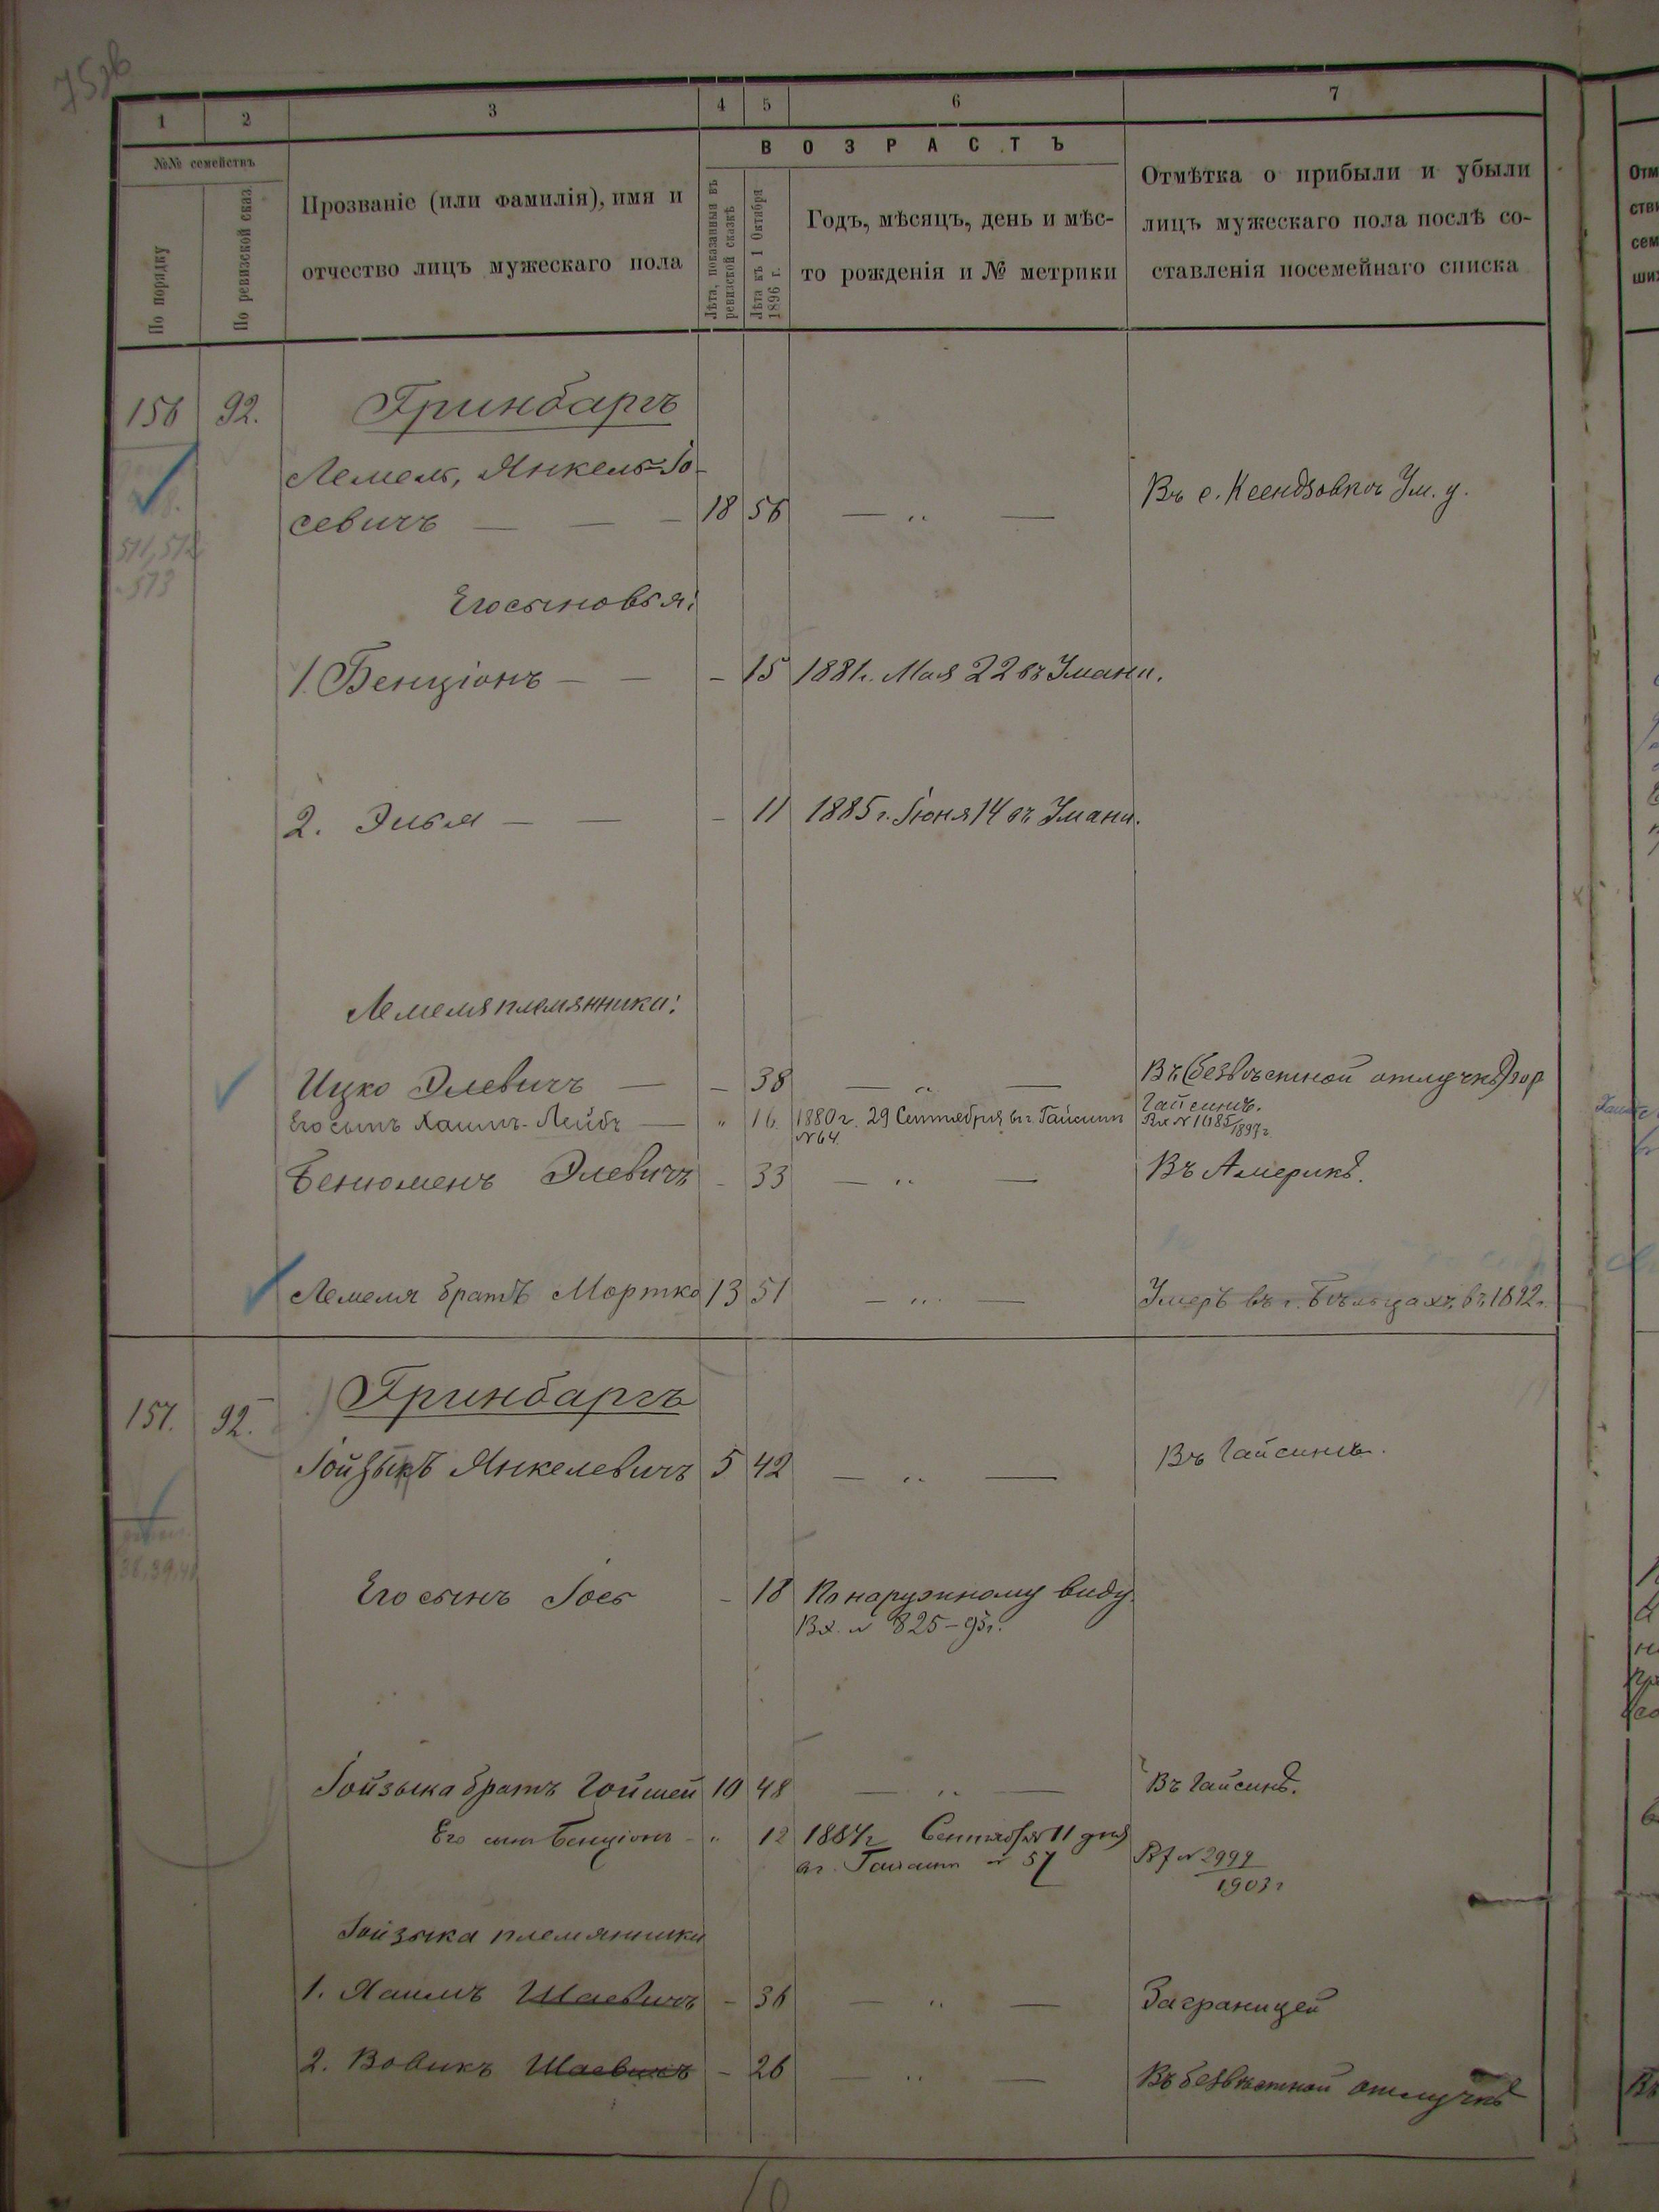 1 2 3 4 5 6 7
№№ семействъ
По порядку
По ревизской сказ.
Прозваніе (или фамилія), имя и
отчество лицъ мужескаго пола
ВОЗРАСТЪ
Лѣта, показанныя въ
ревизской сказкѣ
Лѣта къ 1 Октября
1896 г.
Годъ, мѣсяцъ, день и мѣс-
то рожденія и № метрики
Отмѣтка о прибыли и убыли
лицъ мужескаго пола послѣ со-
ставленія посемейнаго списка
156 92. Гринбаргъ
Лемель, Янкель-Іо-
севичъ — — — 18 56 — „ — Въ с. Ксендзовкѣ Ум. у.
511, 512
513
Его сыновья:
1. Бенціонъ — — — 15 1881г. Мая 22 въ Умани.
2. Элья — — — 11 1885 г. Іюня 14 въ Умани.
Лемеля племянники:
Ицко Элевичъ — — 38 — „ — Въ (безвѣстной отлучкѣ) гор
Гайсинѣ.
Его сынъ Хаимъ-Лейбъ — „ 16. 1880 г. 29 Сентября въ г. Гайсинѣ
№ 64.
Вх № 1185/1897 г.
Бенюменъ Элевичъ - 33 — „ — Въ Америкѣ.
Лемеля братъ Мортко 13 51 — „ — Умеръ въ г. Бѣльцахъ въ 1892 г.
157. 92. Гринбаргъ
Іойзыкъ Янкелевичъ 5 42 — „ — Въ Гайсинѣ.
38, 39, 40
Его сынъ Іось - 18 По наружному виду
Вх. № 825 - 93 г.
Іойзыка братъ Гойшей 10 48 — „ — Въ Гайсинѣ.
Его сынъ Бенціонъ - „ 12 1884 г Сентября 11 дня
вг. Гайсинѣ № 57
Вх № 2999
1903 г
Іойзыка племянники
1. Хаимъ Шаевичъ - 36 — „ — Заграницей
2. Вовикъ Шаевичъ - 26 — „ — Въ безвѣстной отлучкѣ